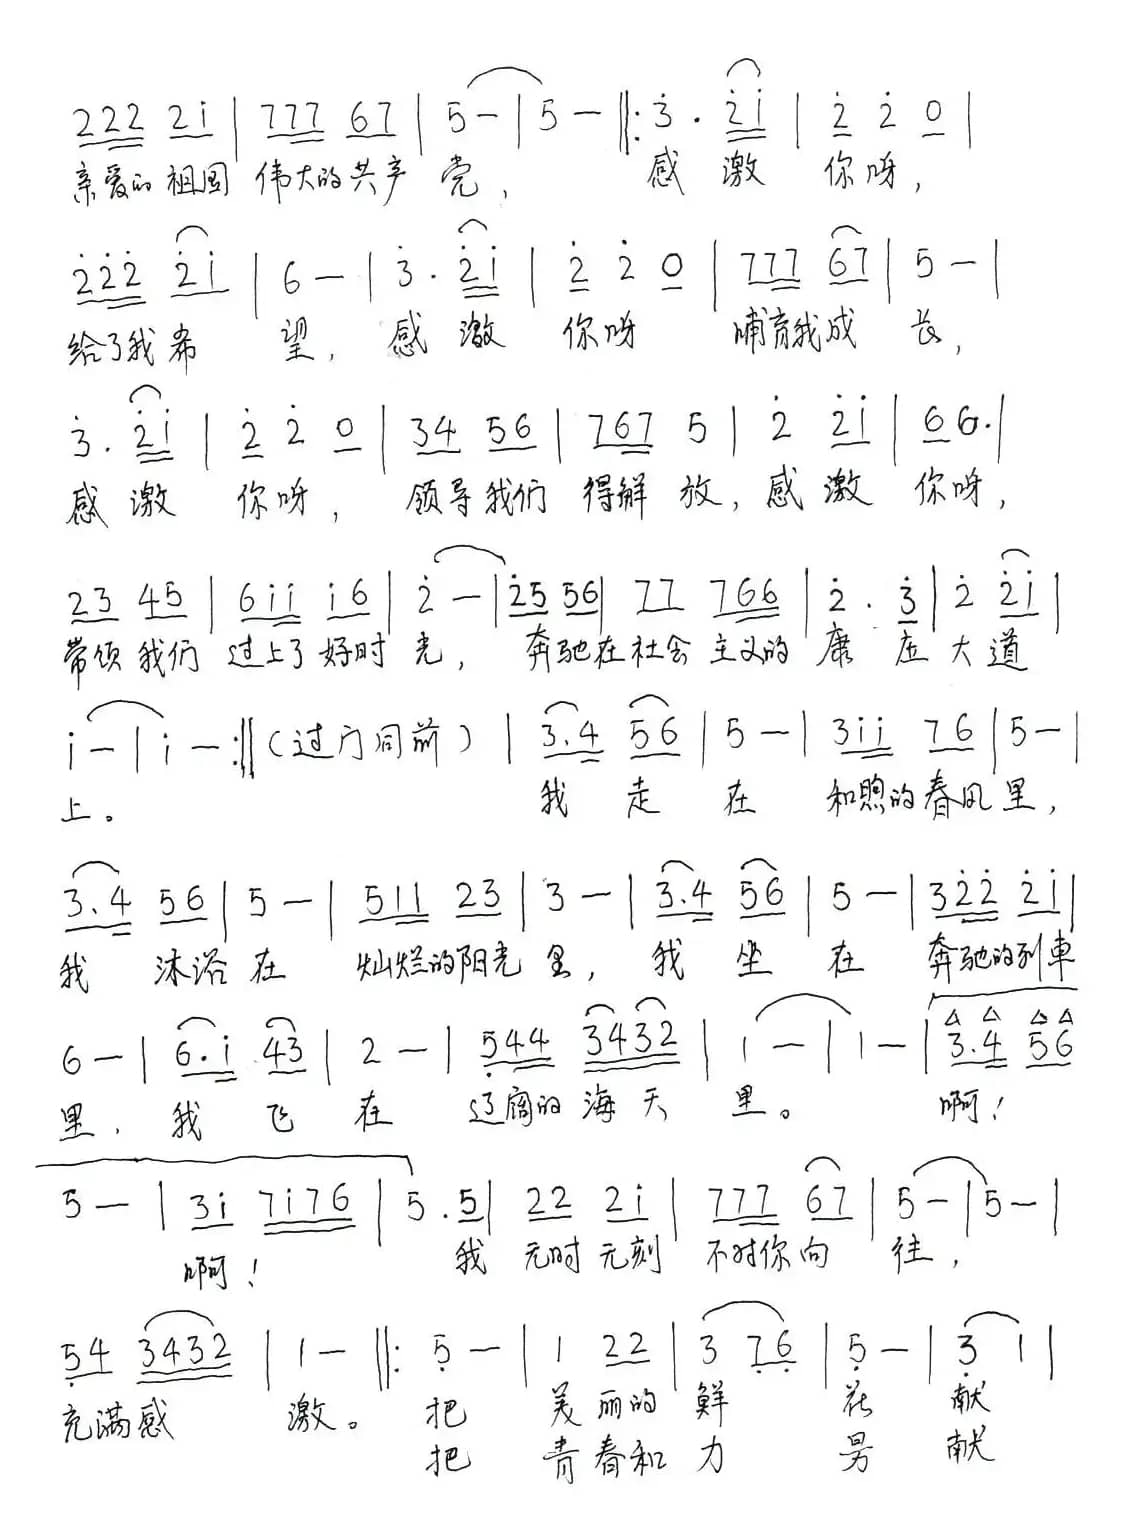 222 2i | 777 67 | 5 - | 5 - ‖: 3̇ · 2̇i | 2̇ 2̇ 0 |
亲爱的祖国 伟大的共产 党， 感 激 你呀，
2̇2̇2̇ 2̇i | 6 - | 3̇ · 2̇i | 2̇ 2̇ 0 | 777 67 | 5 - |
给了我希 望， 感 激 你呀 哺育我成 长，
3̇ · 2̇i | 2̇ 2̇ 0 | 34 56 | 767 5 | 2̇ 2̇i | 66· |
感 激 你呀， 领导我们 得解 放， 感 激 你呀，
23 45 | 6ii i6 | 2̇ - | 2̇5 56 | 77 766 | 2̇ · 3̇ | 2̇ 2̇i |
带领我们 过上了好时 光， 奔驰在社会 主义的 康 庄 大 道
i - | i - :‖ (过门同前) | 3·4 56 | 5 - | 3ii 76 | 5 - |
上。 我 走 在 和煦的春风 里，
3·4 56 | 5 - | 511 23 | 3 - | 3·4 56 | 5 - | 32̇2̇ 2̇i |
我 沐浴 在 灿烂的阳光 里， 我 坐 在 奔驰的列車
6 - | 6·i 43 | 2 - | 5̣44 3432 | 1 - | 1 - | 3·4 56
里， 我 飞 在 辽阔的 海 天 里。 啊！
5 - | 3i 7i76 | 5 · 5 | 22 2i | 777 67 | 5 - | 5 - |
啊！ 我 无时 无刻 不对你向 往，
5̣4 3432 | 1 - ‖: 5̣ - | 1 22 | 3 7̣6̣ | 5̣ - | 3̣ 1 |
充满感 激。 把 美 丽的 鲜 花 献
把 青 春和 力 男 献